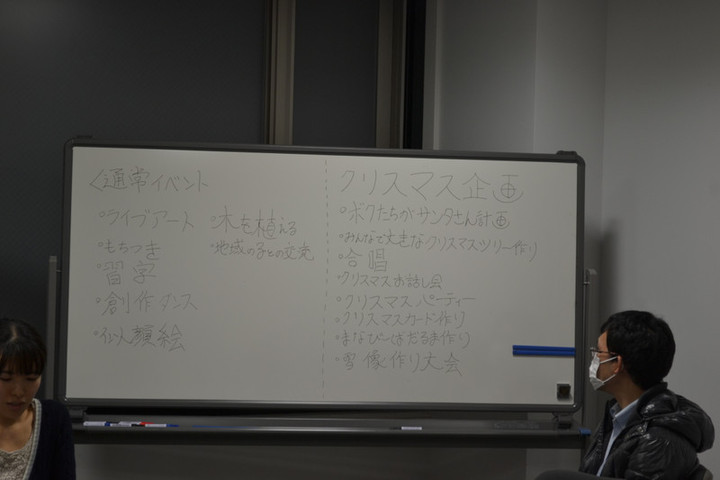 く通常イベント
・ライブアート
・もちつき
・習字
・創作ダンス
・似顔絵
・木を植える
・地域の子との交流
クリスマス企画
・ボクたちがサンタさん計画
・みんなで大きなクリスマスツリー作り
・合唱
・クリスマスお話し会
・クリスマスパーティー
・クリスマスカード作り
・まなびーばだるま作り
・雪像作り大会